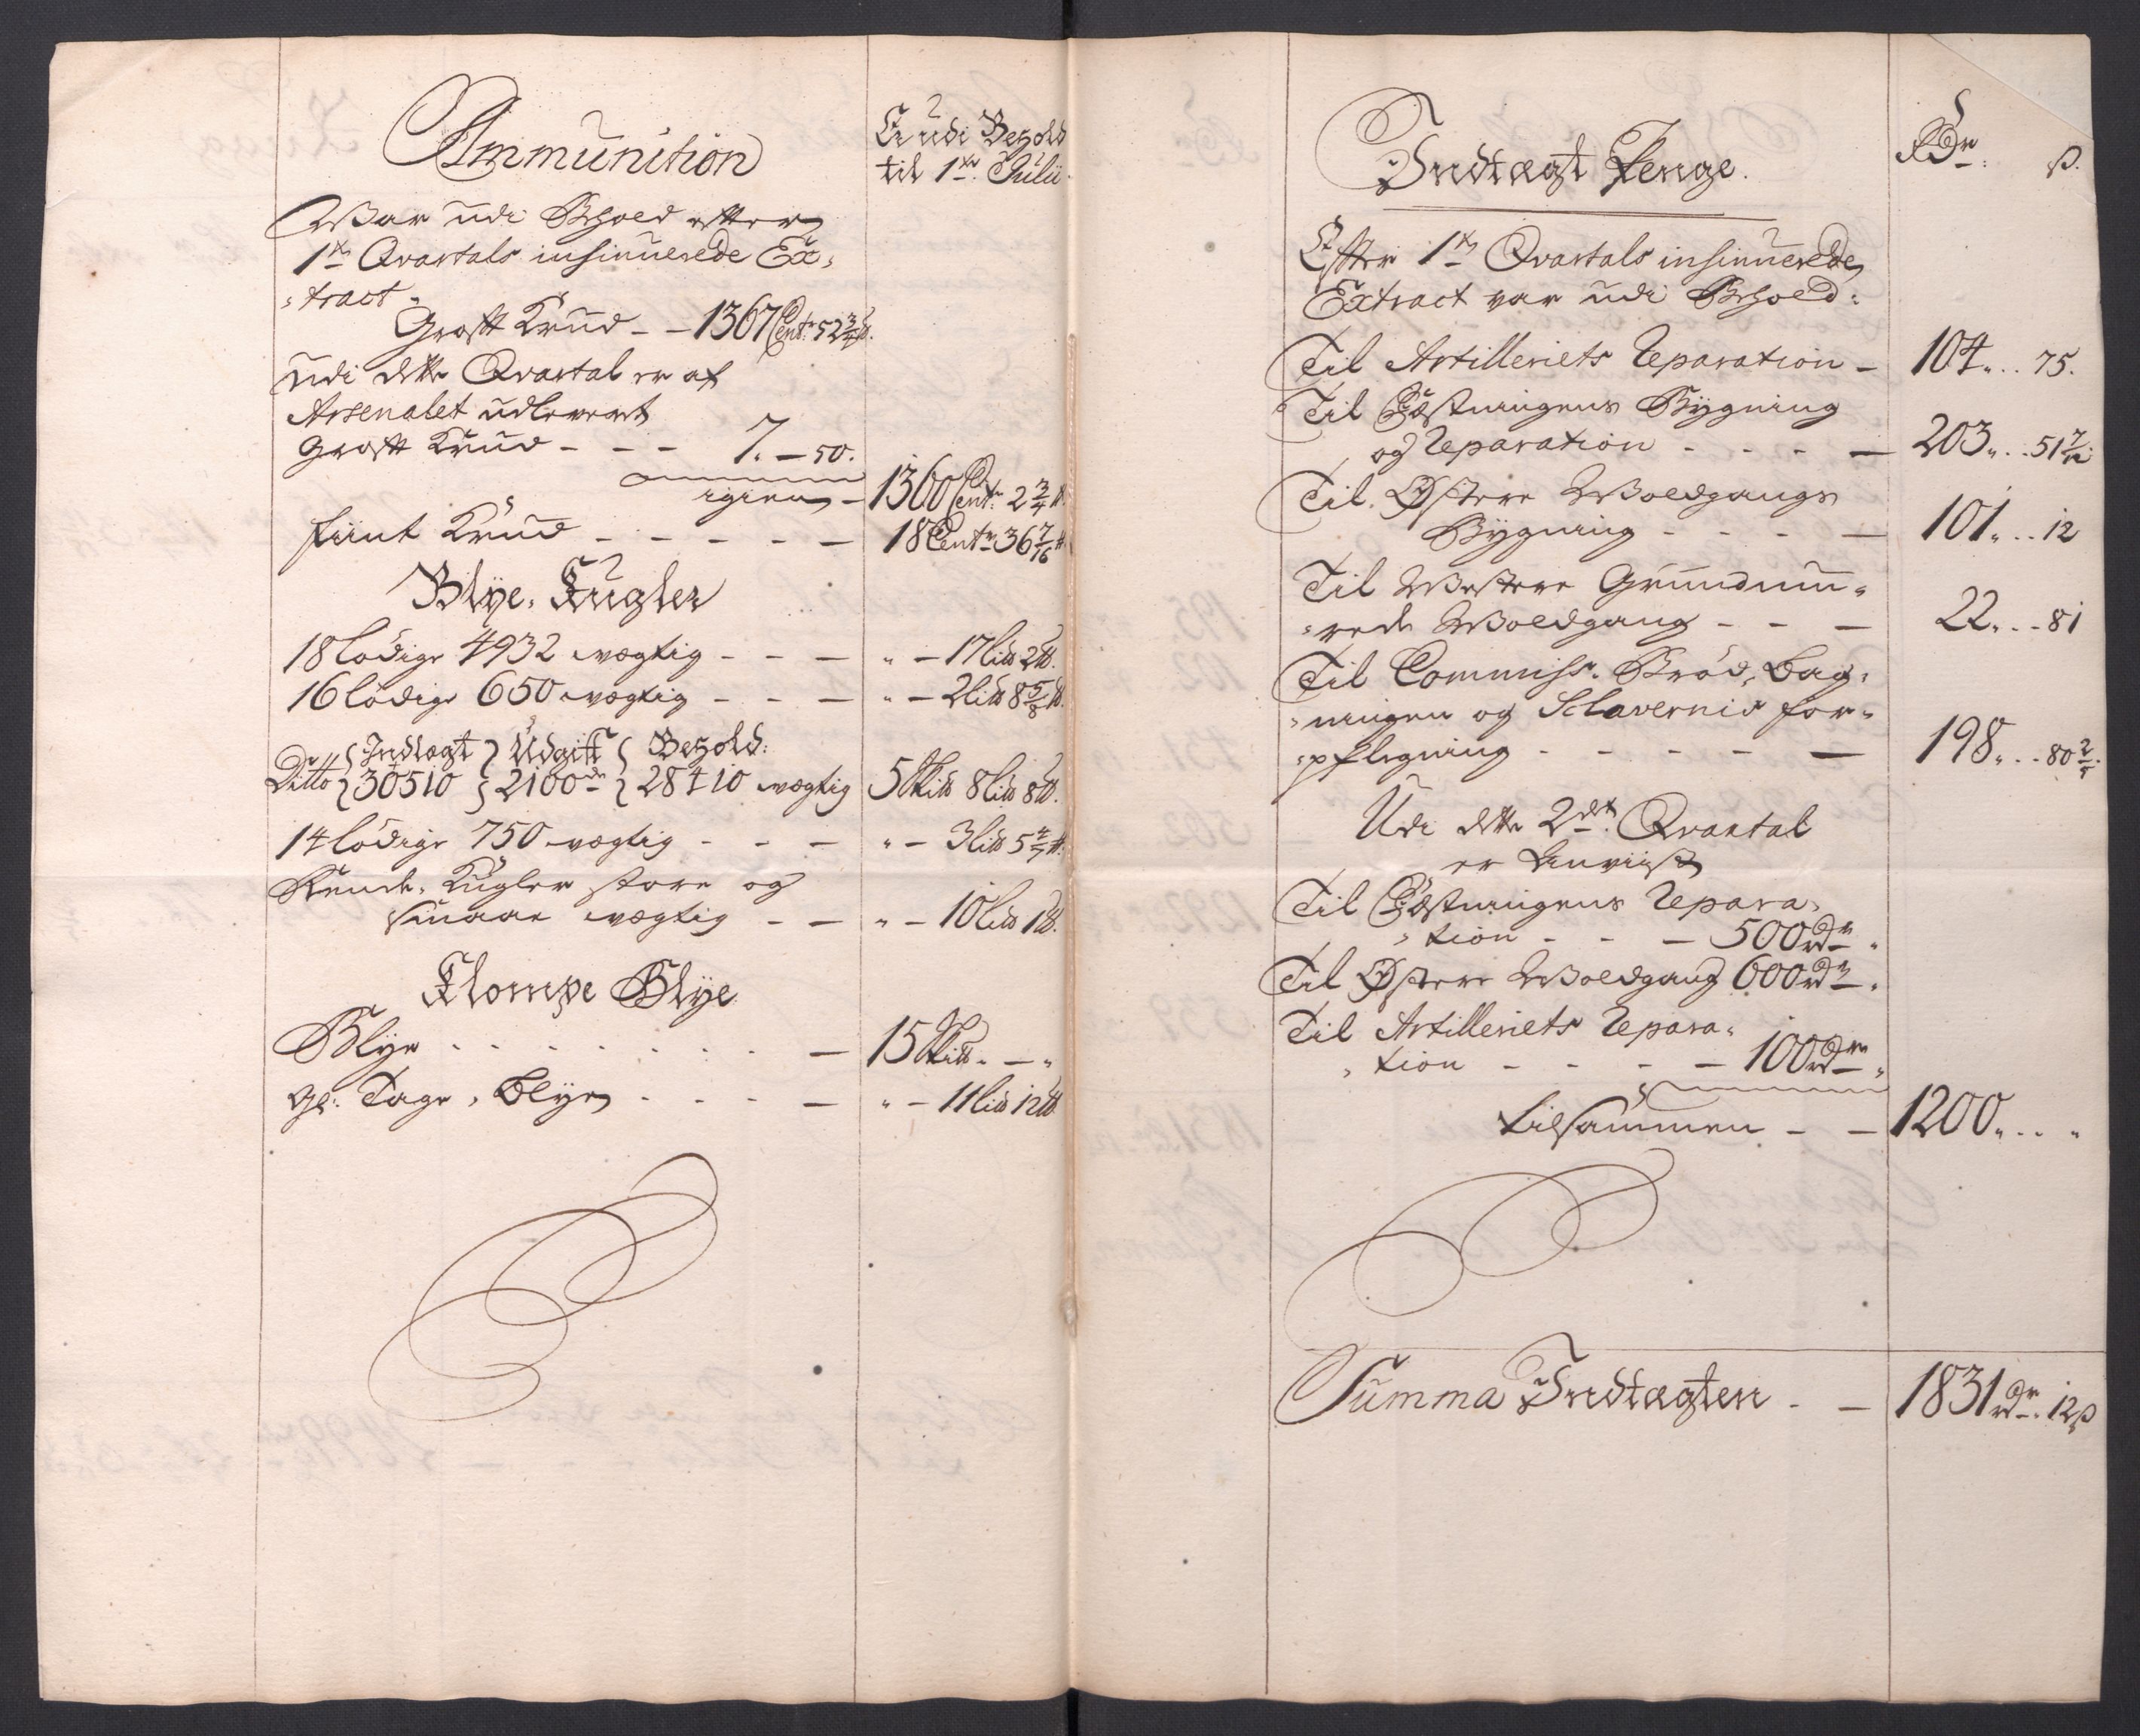 Ammunition
Er udi Behold
til 1ste Julii
War udi Behold efter
1ste Qvartals insinuerede Ex-
-tract
Groft Krud - - 1367 Cent: 52 3/4 ℔.
udi dette Qvartal er af
Arsenalet udleveret
Groft Krud - - - 7. - 50.
igien - 1360 Cent: 2 3/4 ℔.
fiint Krud - - - - - 18 Centr 36 7/16 ℔.
Blÿe-Kugler
18 lödige 4932 vægtig - - - " - 17 li℔ 2 ℔.
16 lödige 650 vægtig - - - " - 2 li℔ 8 5/8 ℔.
Indtægt Udgift Behold:
Ditto 30510 2100de 28410 vægtig 5 Ski℔ 8 li℔ 8 ℔.
14 lödige 750 vægtig - - - " - 3 li℔ 5 ℔.
Kugler store og
smaae vægtig - - " - 10 li℔ 1 ℔.
Klompe Blÿe
Blÿe . . . . . . . - 15 Ski℔. - "
gl: Tage-Blÿe . . . - " - 11 li℔ 12 ℔
Indtægt Penge.
Rdr. ß.
Efter 1te Qvartals insinuerede
Extract var udi Behold:
Til Artilleriets Reparation - 104. . . 75.
Til Fæstningens Bÿgning
og Reparation - - - - 203. . . 51
Til Østere Woldgangs
Bÿgning - - - 101. . . 12
Til Westere Grundmu-
-rede Woldgang - - - 22. . . 81
Til Commiss-Bröd-Bag-
-ningen og Sclavernis for-
-pflegning - - - - - 198. . . 80 2/5.
Udi dette 2det Qvartal
er Anviist
Til Fæstningens Repara-
-tion - - - 500 rdr "
Til Østere Woldgang 600 rdr "
Til Artilleriets Repara-
-tion - - - - 100 rdr "
tilsammen - - 1200. . . "
Summa Indtægten - - 1831 rdr. 12 ß